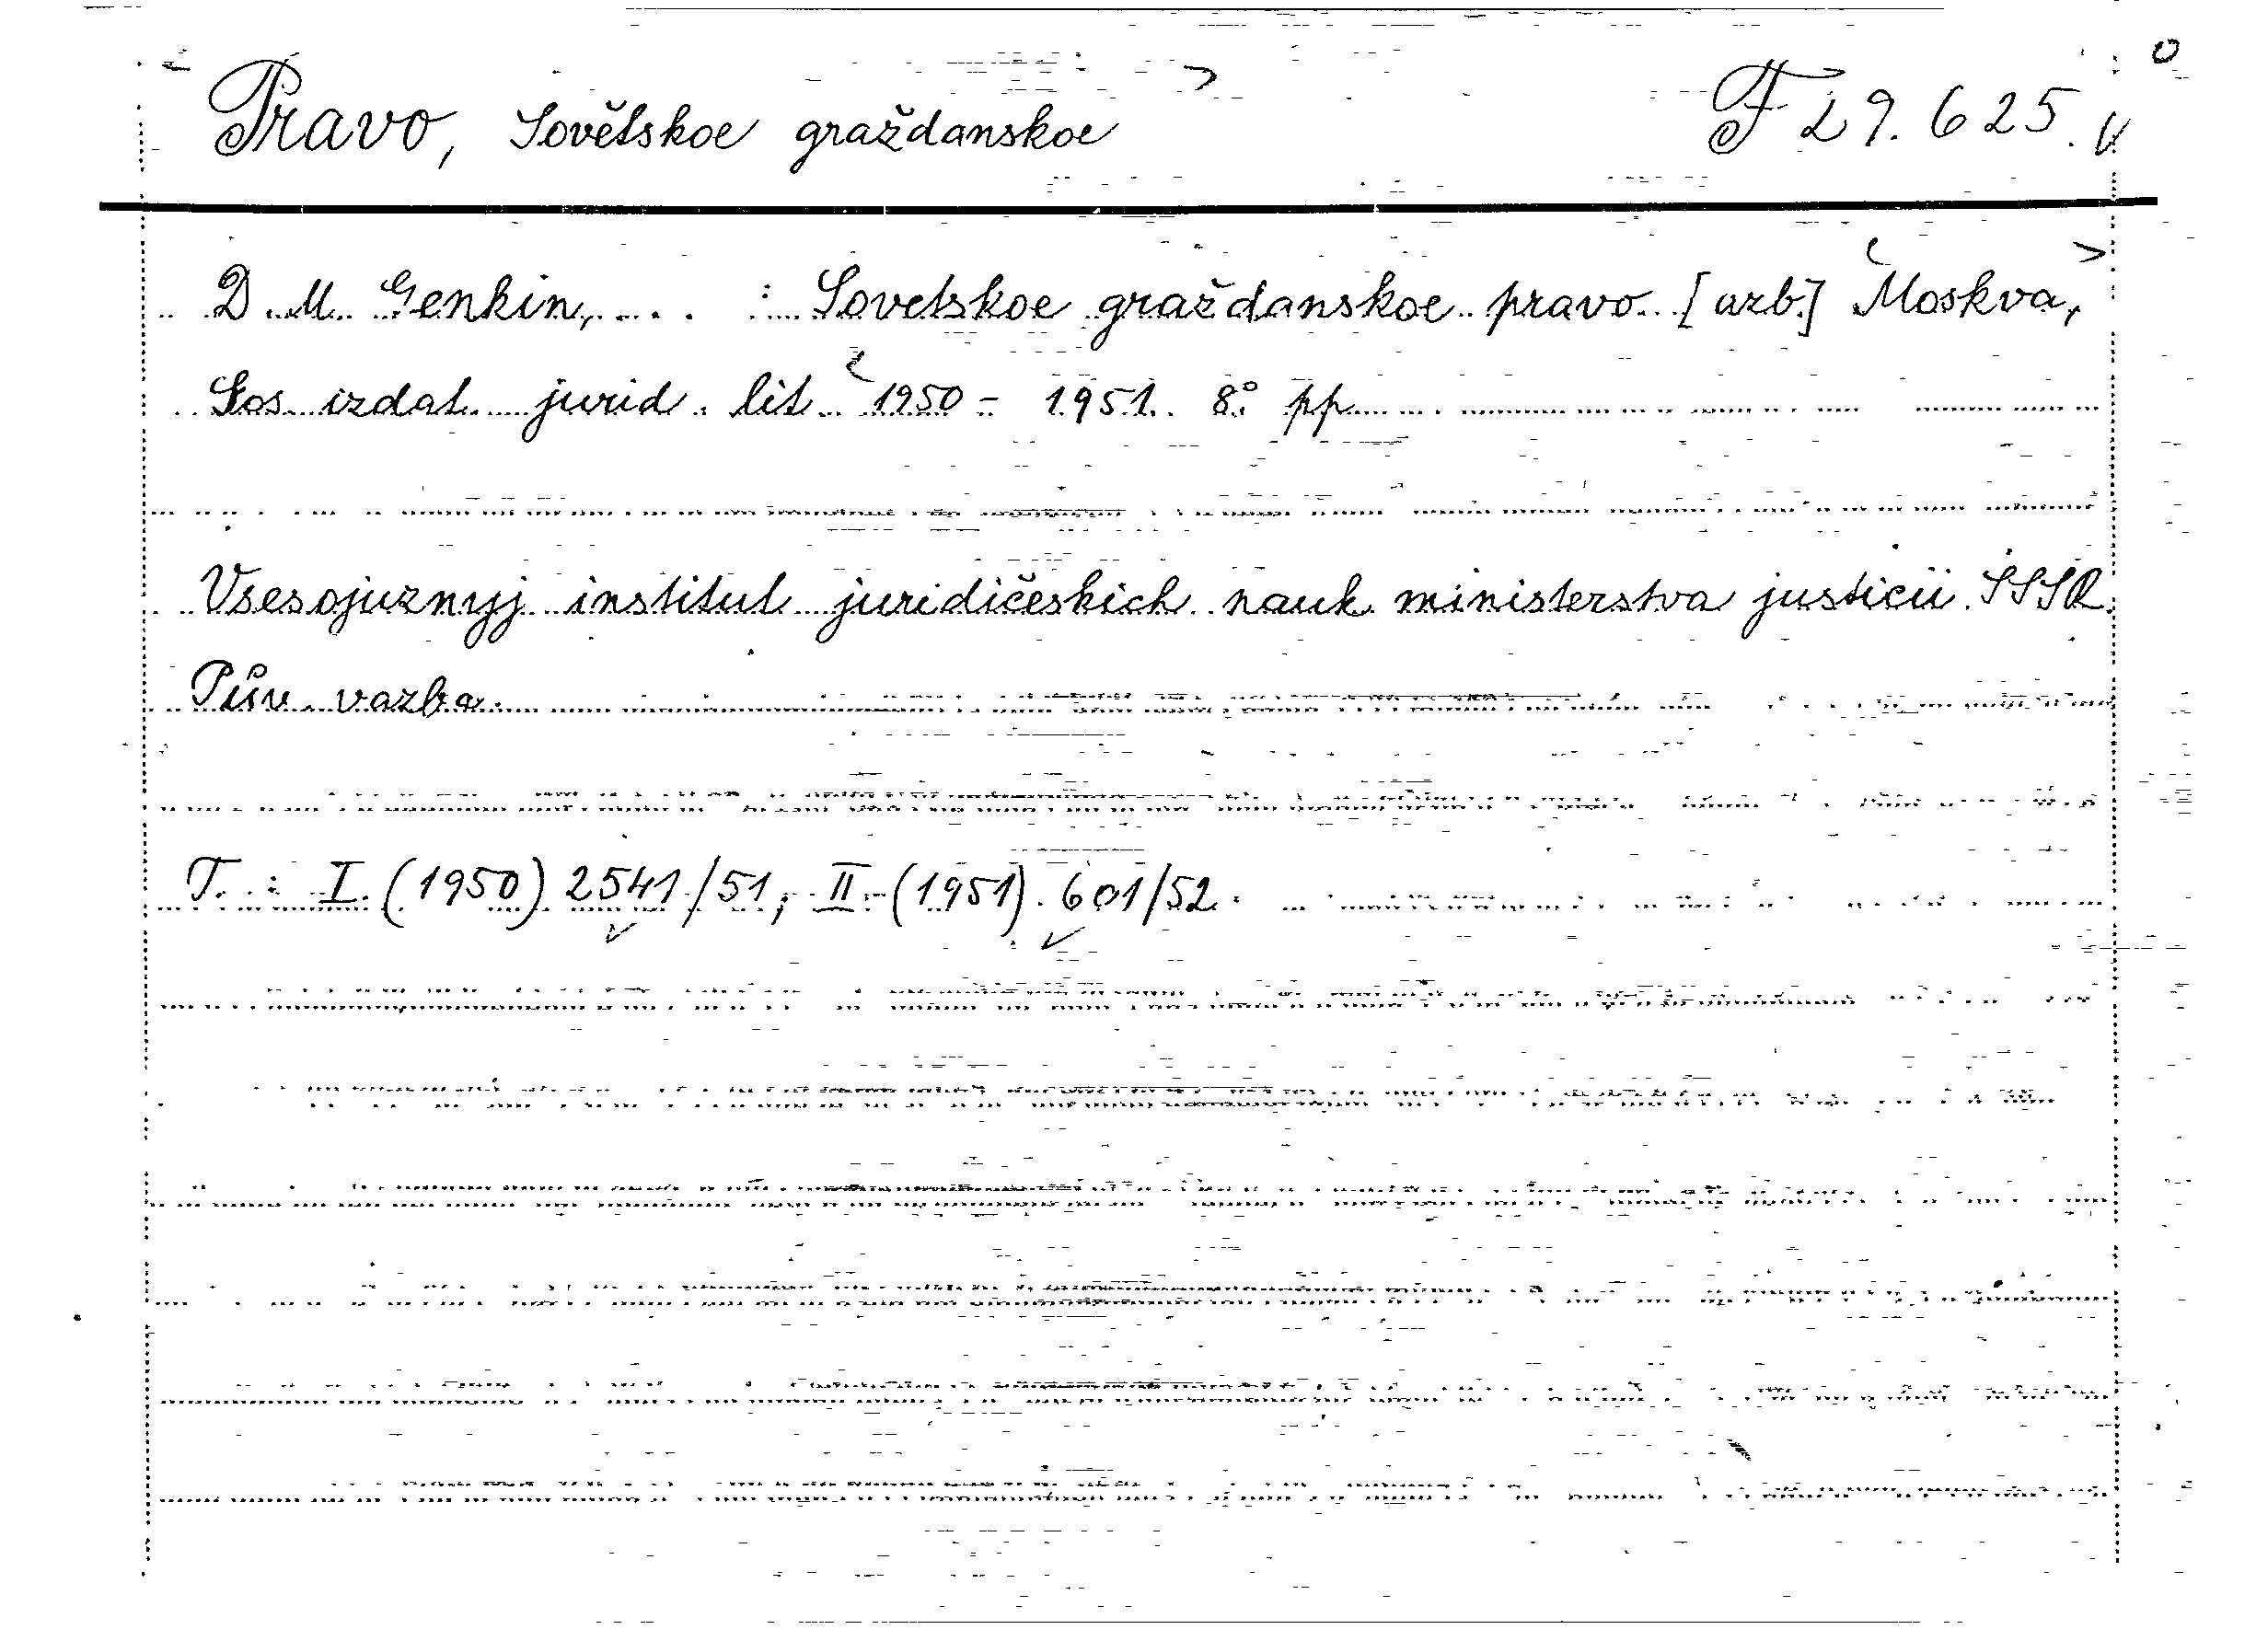 Pravo, Sovětskoe graždanskoe F 29.625.
D. M. Genkin, ... : Sovetskoe graždanskoe pravo. [azb.] Moskva,
Gos. izdat. jurid. lit. 1950 - 1951. 8° pp
Vsesojuznyj institut juridičeskich nauk ministerstva justicii SSSR.
Pův. vazba.
T. : I. (1950) 2541/51, II. (1951). 601/52.